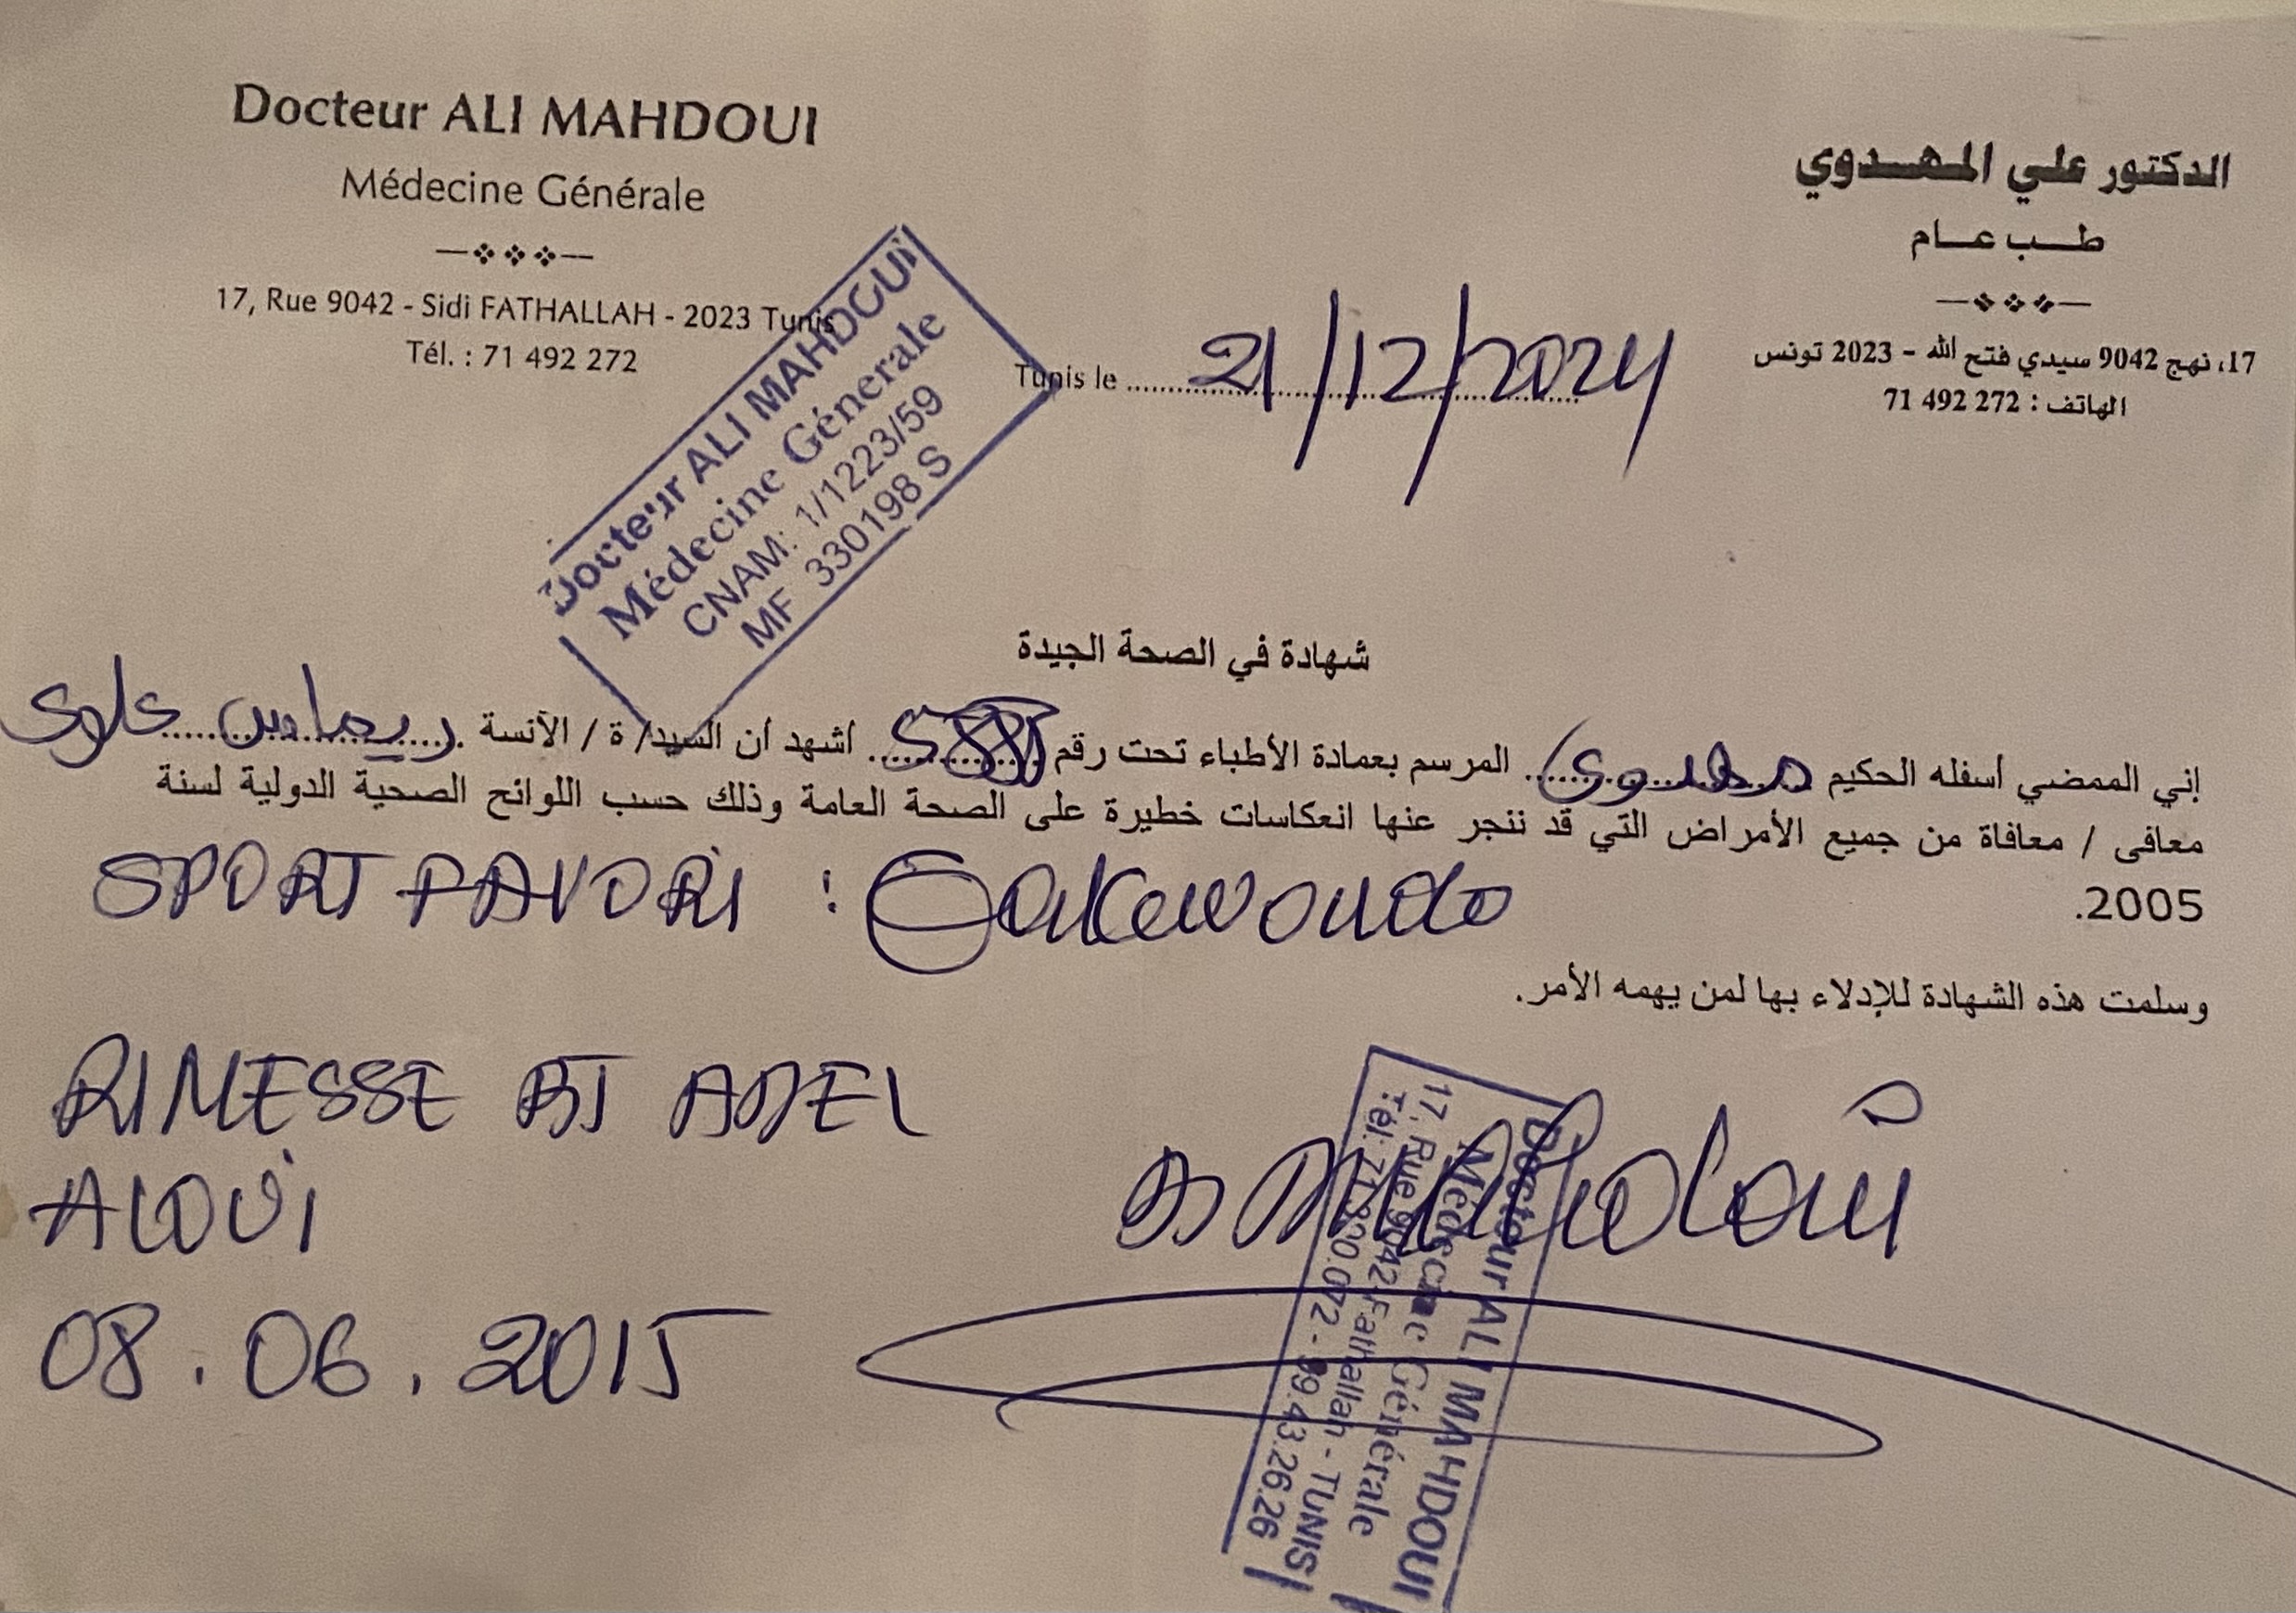 Docteur ALI MAHDOUI
Médecine Générale
17, Rue 9042 - Sidi FATHALLAH - 2023 Tunis
Tél. : 71 492 272
الدكتور علي المهدوي
طب عام
17، نهج 9042 سيدي فتح الله - 2023 تونس
الهاتف : 272 492 71
Docteur ALI MAHDOUI
Médecine Génerale
CNAM: 1/1223/59
MF 330198 S
Tunis le 21/12/2024
شهادة في الصحة الجيدة
إني الممضي أسفله الحكيم مهدوي المرسم بعمادة الأطباء تحت رقم أشهد أن السيد/ ة / الآنسة ريماس علوي
معافى / معافاة من جميع الأمراض التي قد تنجر عنها انعكاسات خطيرة على الصحة العامة وذلك حسب اللوائح الصحية الدولية لسنة
2005.
SPORT FAVORI : Taekwondo
وسلمت هذه الشهادة للإدلاء بها لمن يهمه الأمر.
RIMESSE BT ADEL
ALOUI
08.06.2015
Dr Mahdoui
Docteur ALI MAHDOUI
Médecine Générale
17, Rue 9042 Fathallah - TUNIS
Tél: 71.390.072 - 99.43.26.26